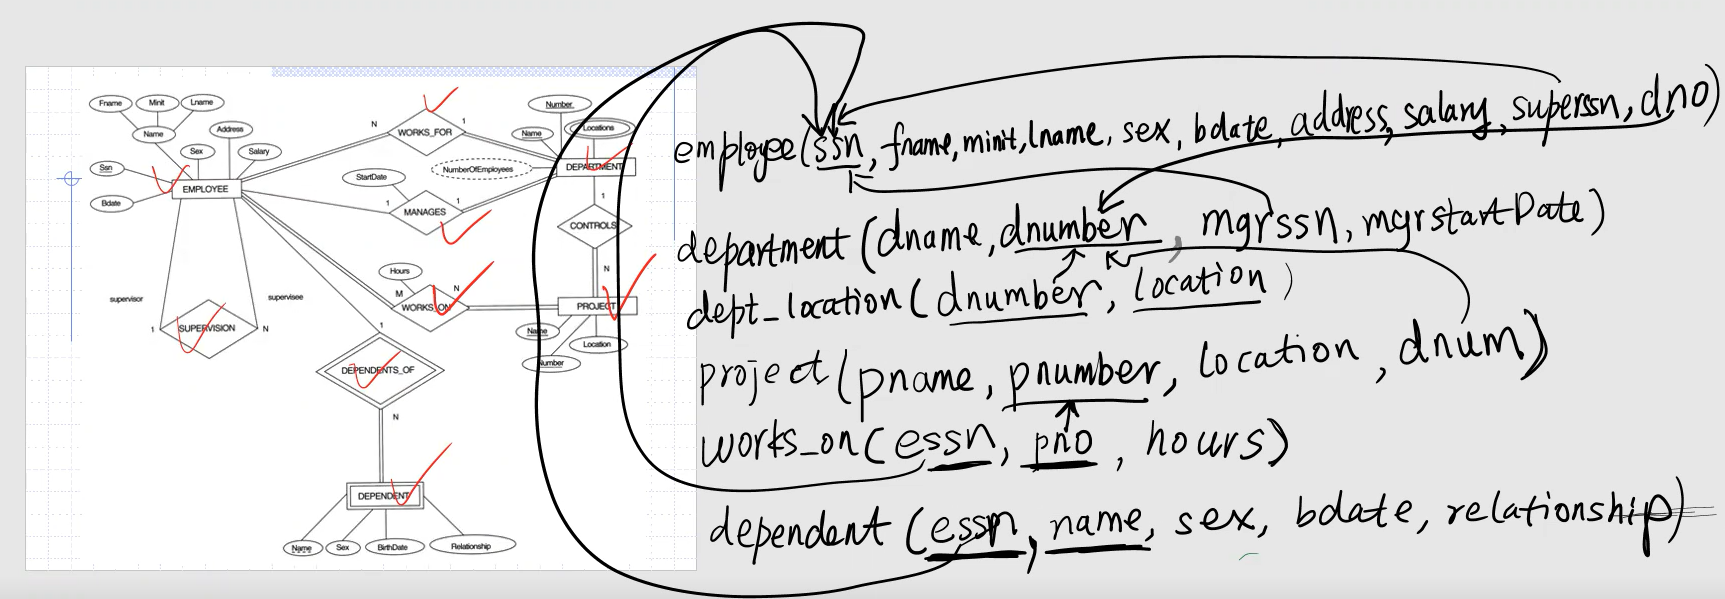 Fname Minit Lname
Number
N 1
Name Address WORKS_FOR Name Locations
Sex Salary
Ssn StartDate NumberOfEmployees DEPARTMENT
EMPLOYEE
Bdate 1 MANAGES 1 1
CONTROLS
Hours N
supervisor supervisee M N
WORKS_ON PROJECT
1 SUPERVISION N 1 Name
Location
DEPENDENTS_OF Number
N
DEPENDENT
Name Sex BirthDate Relationship
employee(ssn, fname, minit, lname, sex, bdate, address, salary, superssn, dno)
department (dname, dnumber, mgrssn, mgrstartDate)
dept_location (dnumber, location)
project (pname, pnumber, location, dnum)
works_on (essn, pno, hours)
dependent (essn, name, sex, bdate, relationship)